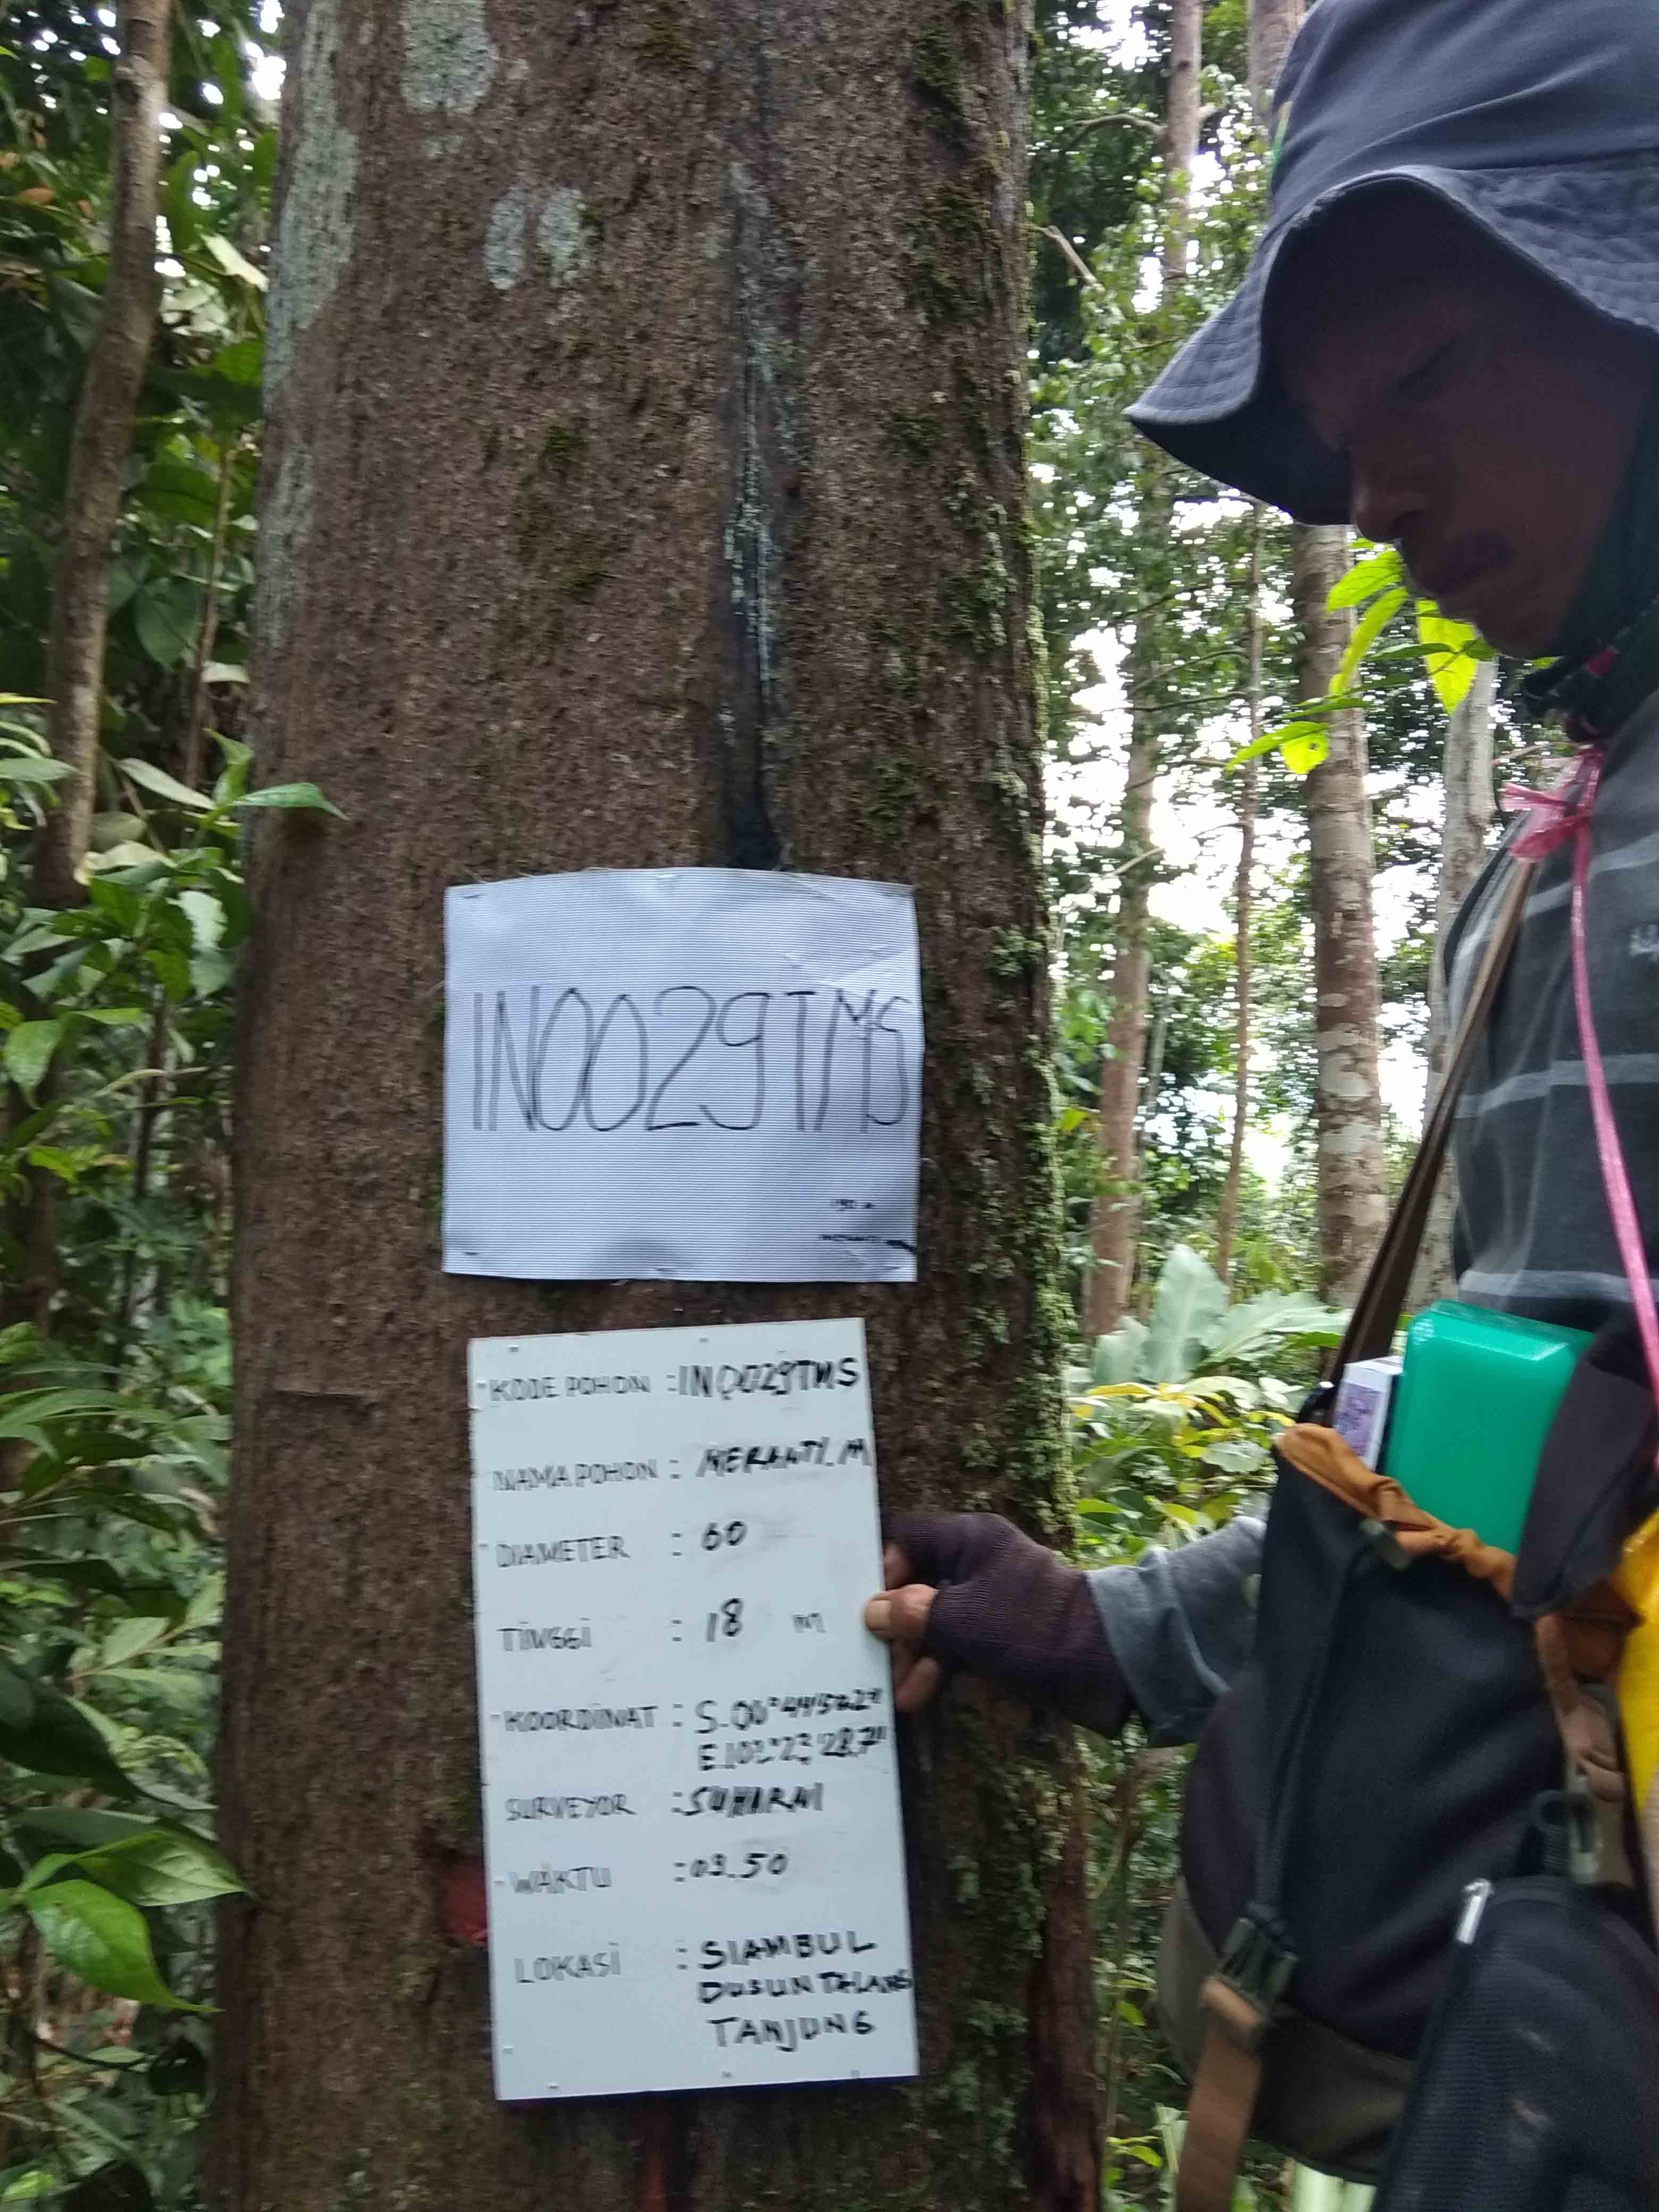 IN0029TMS
- KODE POHON : IN0029TMS
- NAMA POHON : MERANTI.M
- DIAMETER : 60
TINGGI : 18 M
- KOORDINAT : S.00°
SURVEYOR : SUHIRNI
- WAKTU : 03.50
LOKASI : SIAMBUL
DUSUN TALANG
TANJUNG